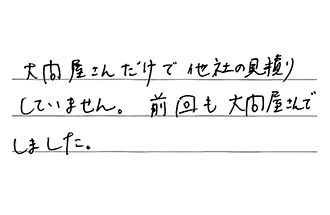 大間屋さんだけで他社の見積り
していません。前回も大間屋さんで
しました。